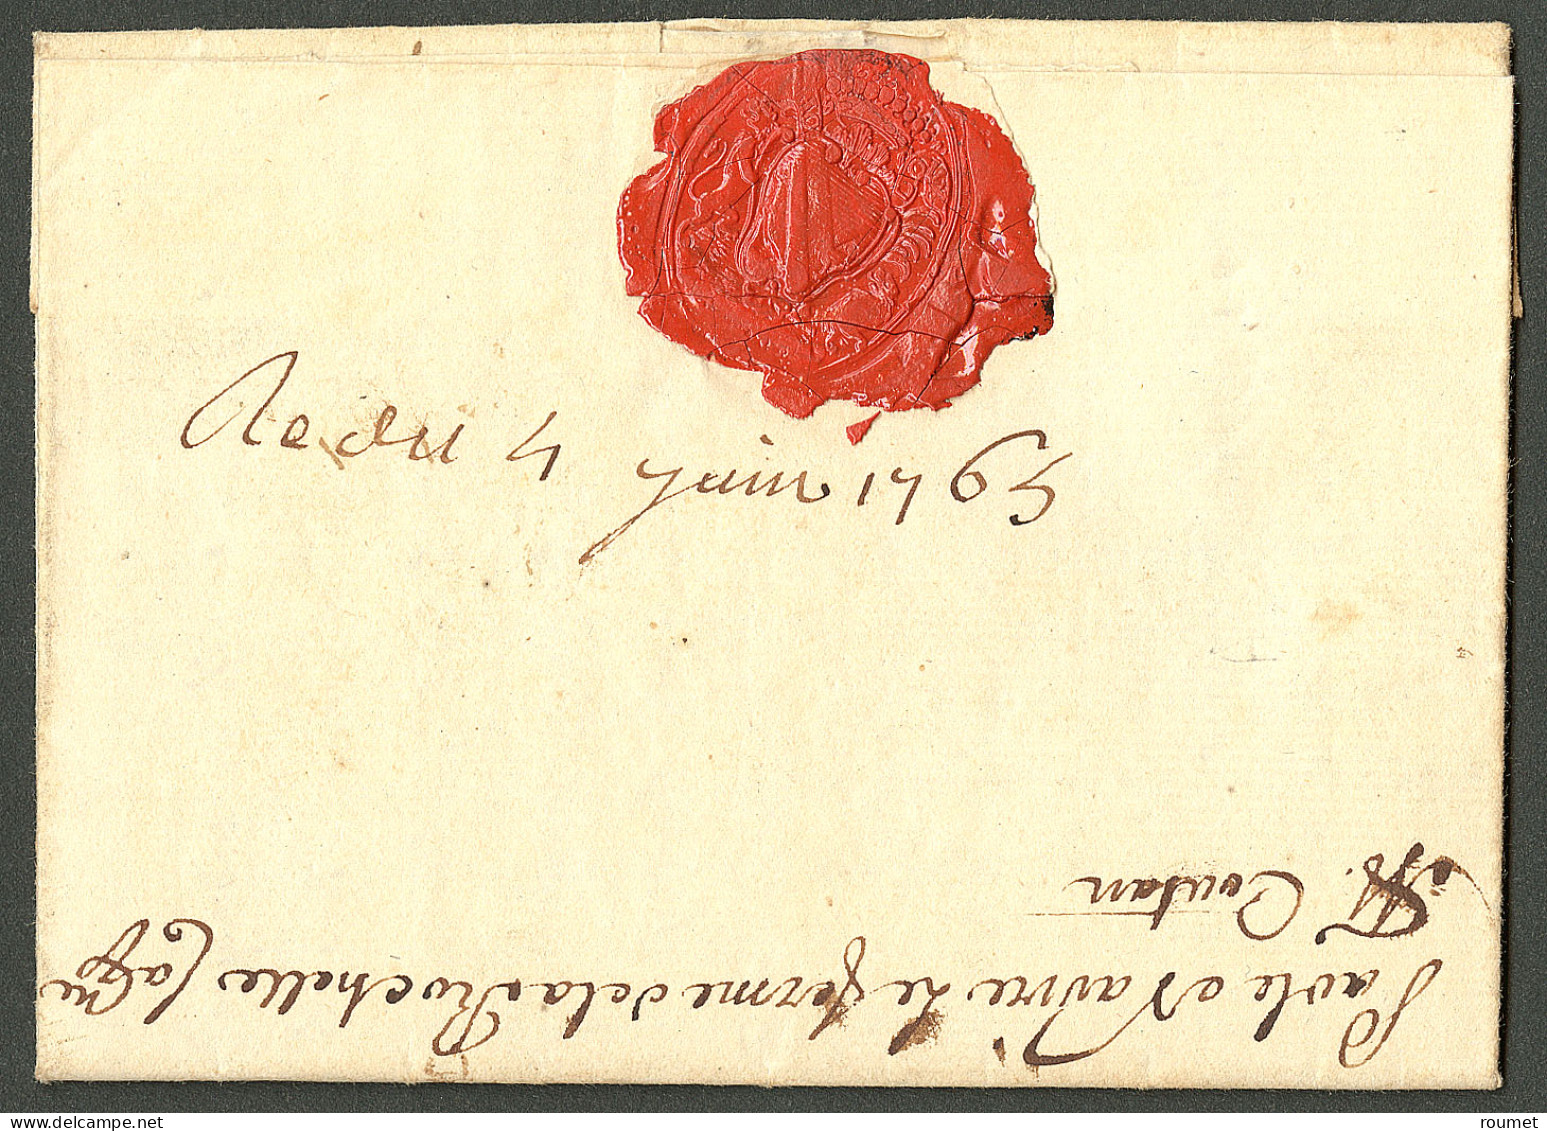 Recdu 4 juin 1765
Par le Navire Le ferme de la Rochelle Cap.ne
Coutan
www.delcampe.net
roumet